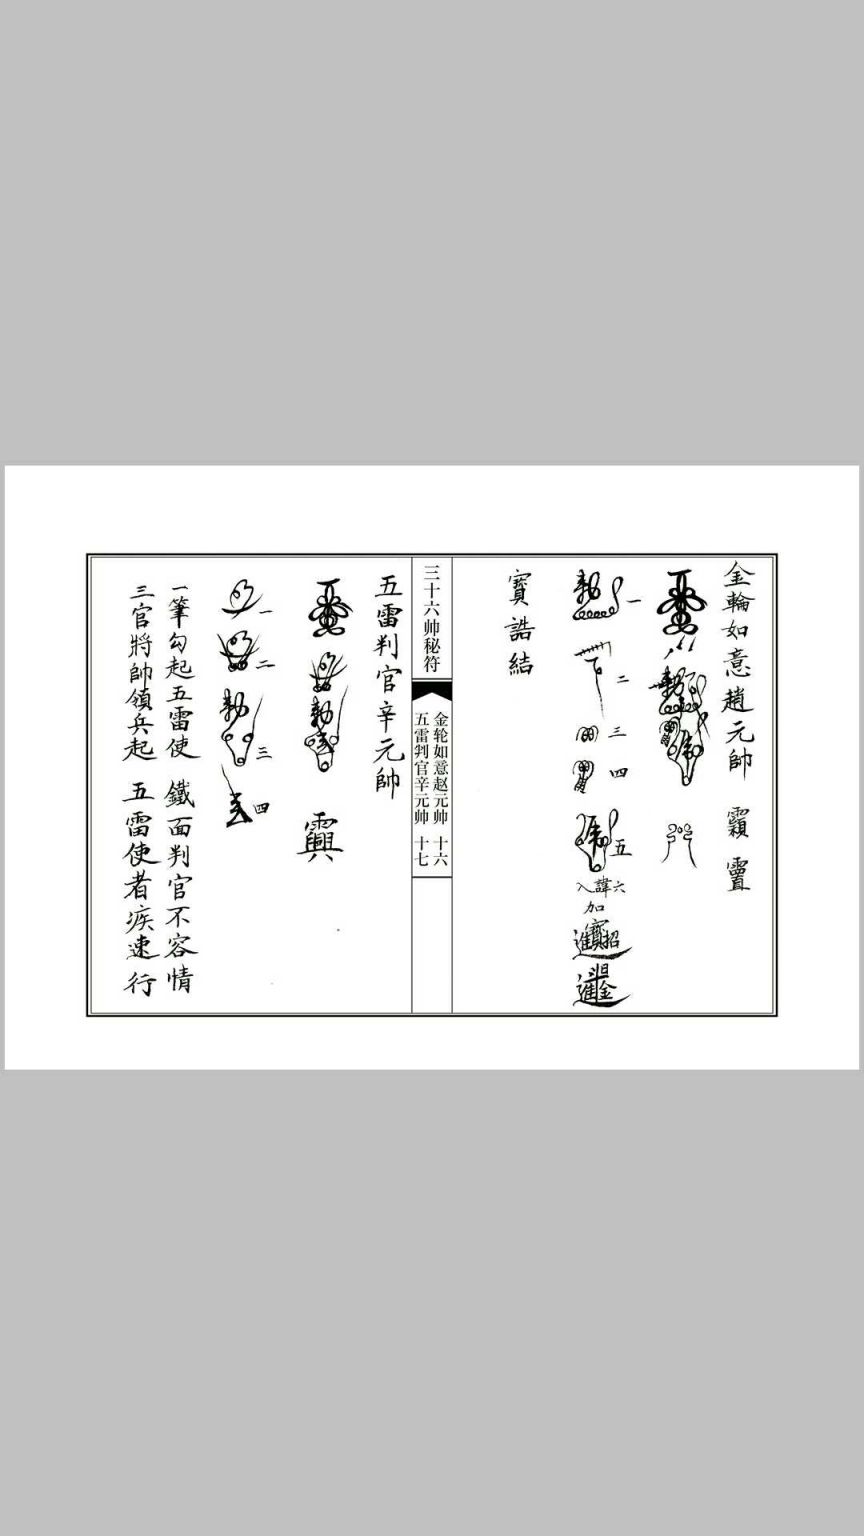 金輪如意趙元帥
一
二
三
四
五
六諱入
加
招寶進
日金進
寶誥結
三十六帅秘符
金轮如意赵元帅 十六
五雷判官辛元帅 十七
五雷判官辛元帥
一
二
三
四
一筆勾起五雷使 鐵面判官不容情
三官將帥領兵起 五雷使者疾速行